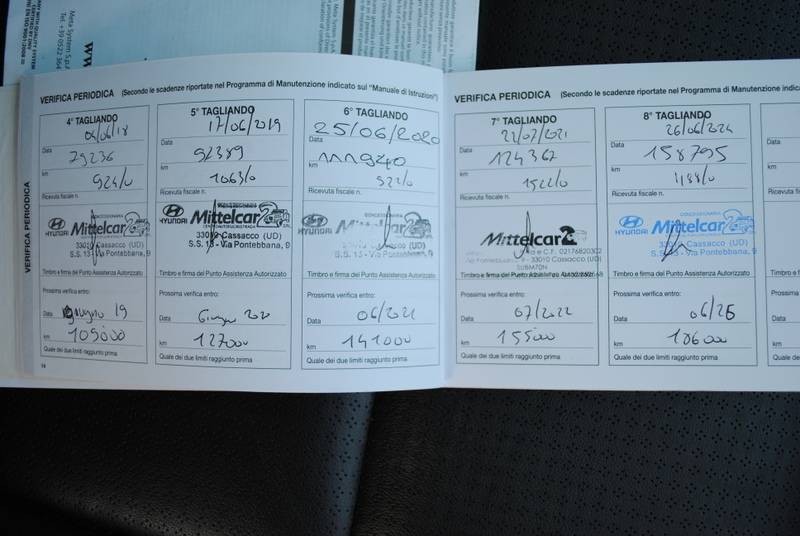 Meta System S.p.A.
VERIFICA PERIODICA (Secondo le scadenze riportate nel Programma di Manutenzione indicato sul "Manuale di Istruzioni")
VERIFICA PERIODICA
4° TAGLIANDO
04/06/18
Data
79236
km
924/0
Ricevuta fiscale n.
HYUNDAI Mittelcar
33010 Cassacco (UD)
S.S. 13 - Via Pontebbana, 9
Timbro e firma del Punto Assistenza Autorizzato
Prossima verifica entro:
Data giugno 19
km 109000
Quale dei due limiti raggiunto prima
14
5° TAGLIANDO
17/06/2019
Data
92389
km
1063/0
Ricevuta fiscale n.
HYUNDAI Mittelcar
33010 Cassacco (UD)
S.S. 13 - Via Pontebbana, 9
Timbro e firma del Punto Assistenza Autorizzato
Prossima verifica entro:
Data Giugno 2020
km 127000
Quale dei due limiti raggiunto prima
6° TAGLIANDO
25/06/2020
Data
km
922/0
Ricevuta fiscale n.
CONCESSIONARIA
HYUNDAI Mittelcar
33010 Cassacco (UD)
S.S. 13 - Via Pontebbana, 9
Timbro e firma del Punto Assistenza Autorizzato
Prossima verifica entro:
Data 06/2021
km 141000
Quale dei due limiti raggiunto prima
VERIFICA PERIODICA (Secondo le scadenze riportate nel Programma di Manutenzione indica
7° TAGLIANDO
22/07/2021
Data
124362
km
1522/0
Ricevuta fiscale n.
Mittelcar
P.Iva e C.F. 02176820302
Via Pontebbana, 9 - 33010 Cassacco (UD)
SUBM70N
Timbro e firma del Punto Assistenza Autorizzato
Prossima verifica entro:
Data 07/2022
km 155000
Quale dei due limiti raggiunto prima
8° TAGLIANDO
26/06/2024
Data
158795
km
1188/0
Ricevuta fiscale n.
CONCESSIONARIA
HYUNDAI Mittelcar
33010 Cassacco (UD)
S.S. 13 - Via Pontebbana, 9
Timbro e firma del Punto Assistenza Autorizzato
Prossima verifica entro:
Data 06/25
km 186000
Quale dei due limiti raggiunto prima